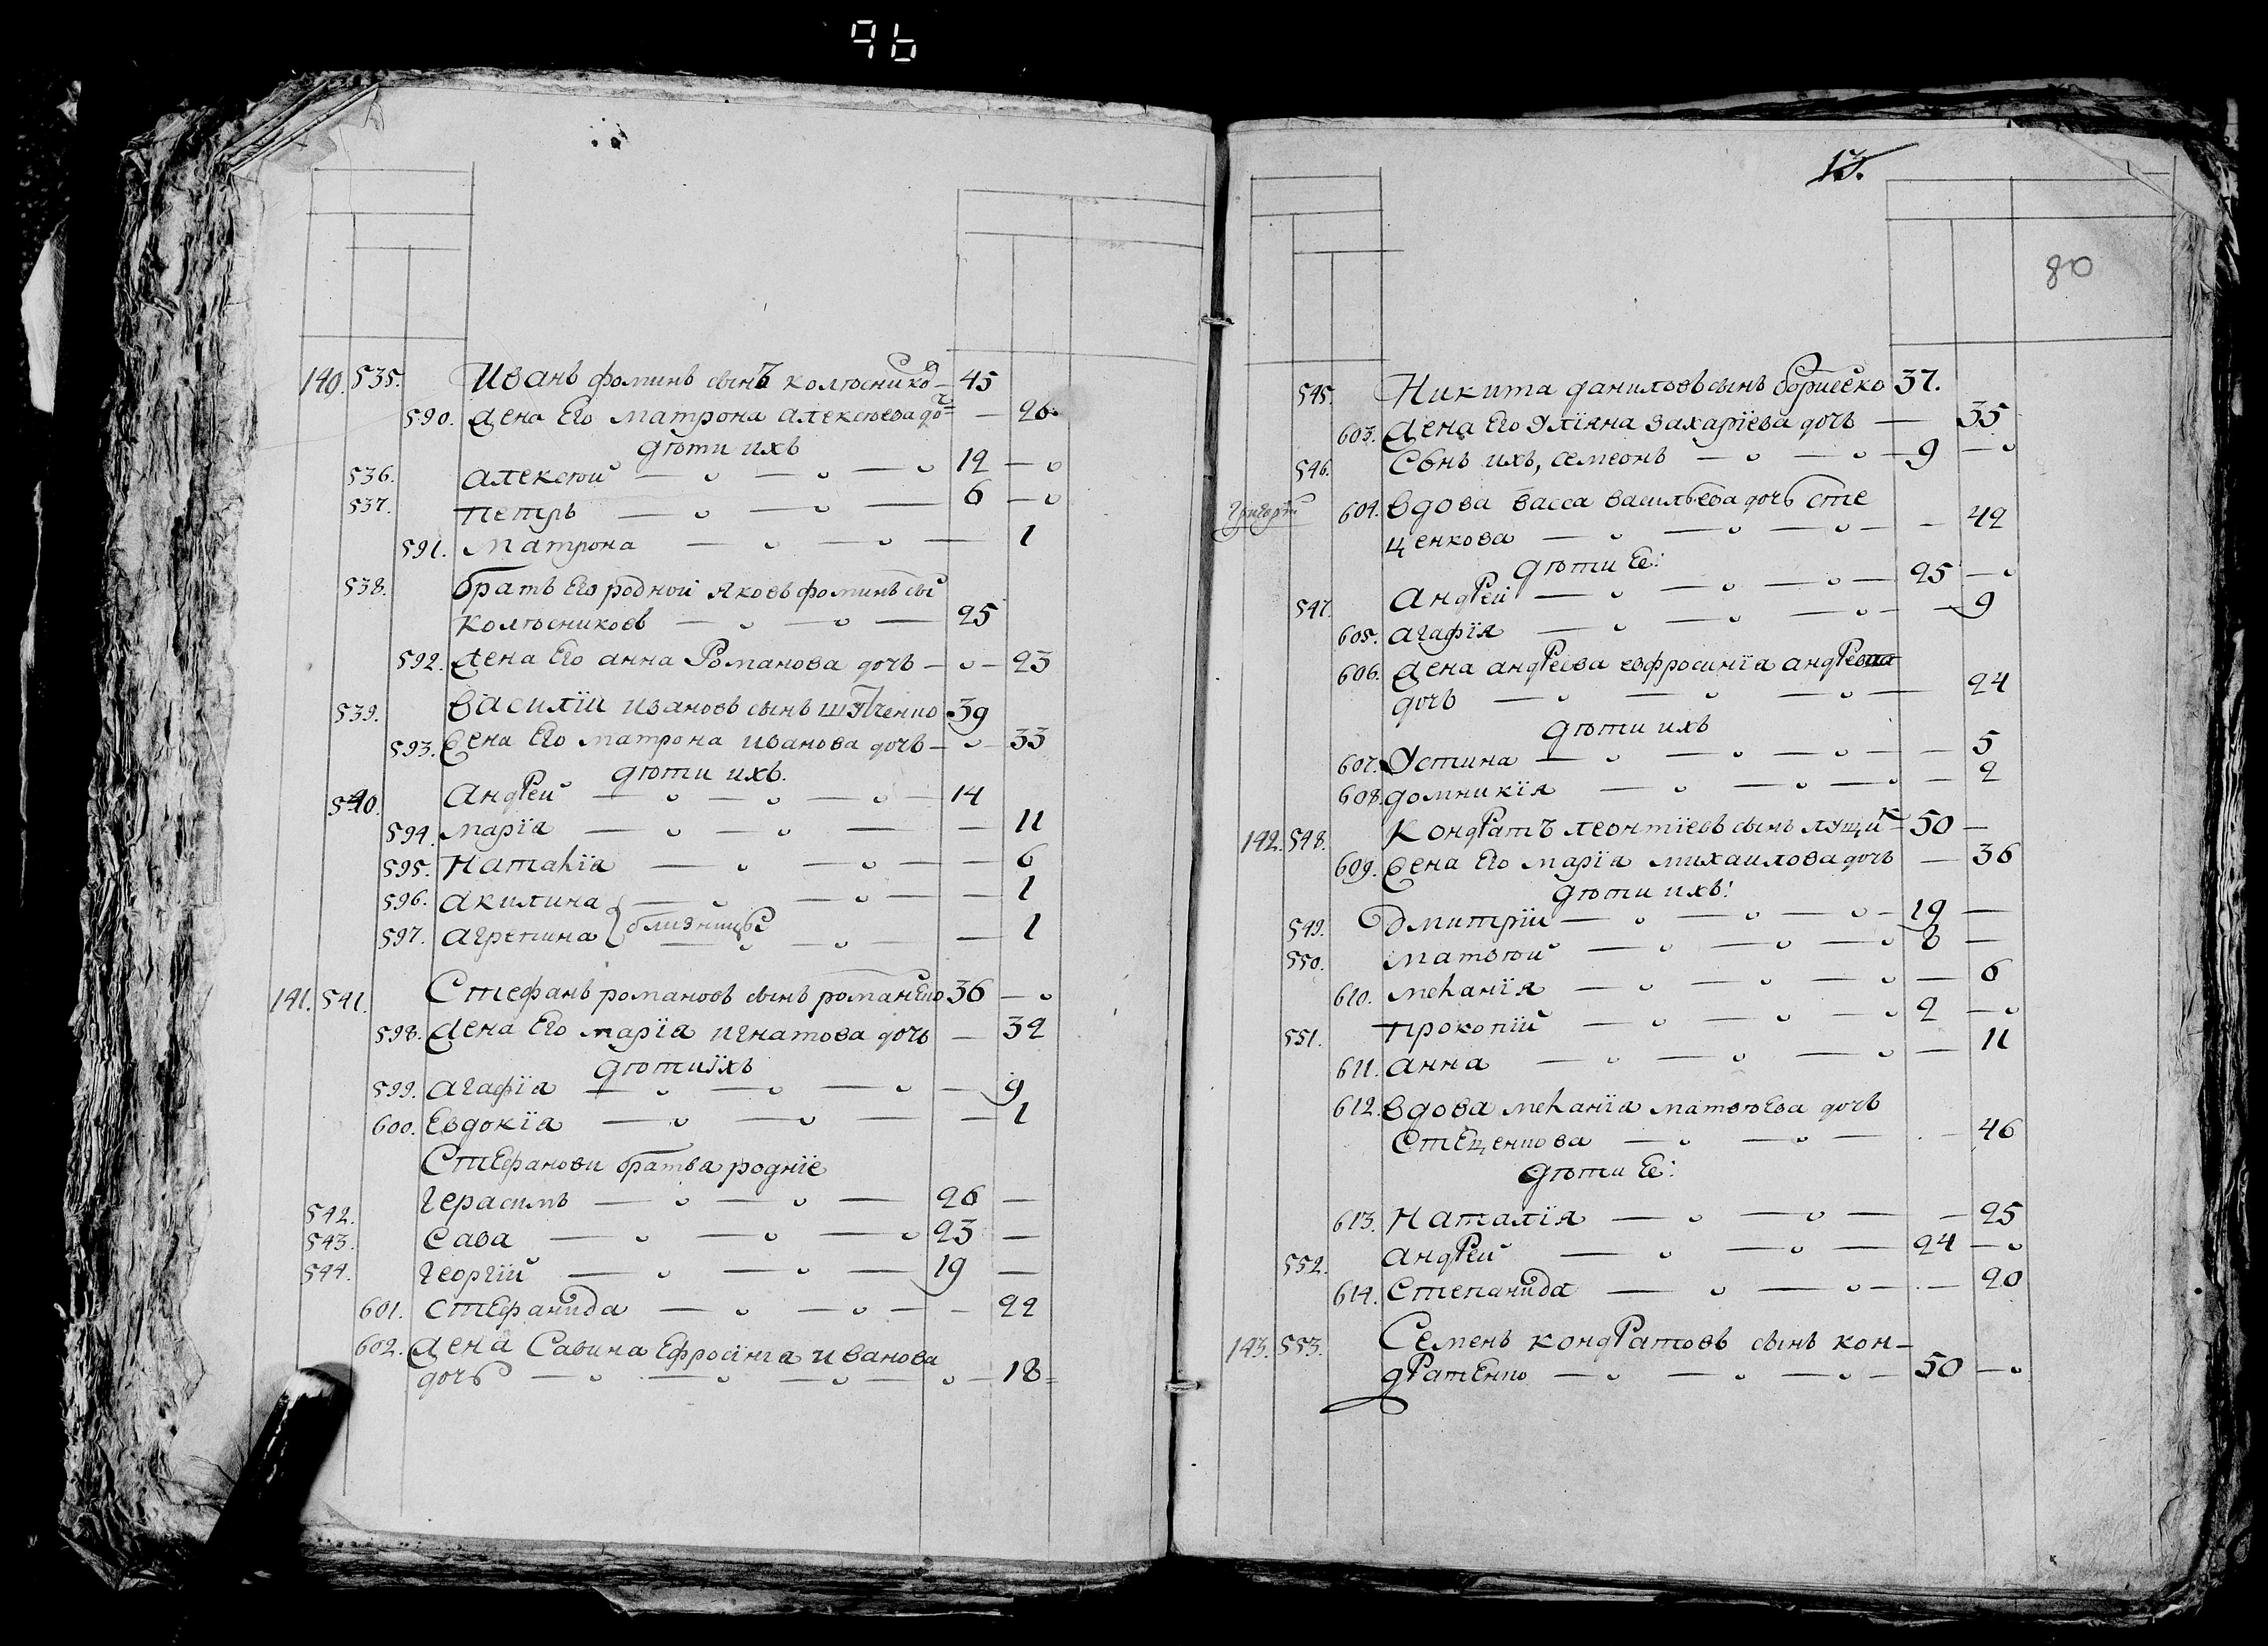 96
140. 535. Иванъ фоминъ сынъ колѣснико 45
590. Жена Его матрона алексѣева до 26
дѣти ихъ
536. алексѣй 12
537. петръ 6
591. матрона 1
538. братъ Его родной яковъ фоминъ сы
колѣсниковъ 25
592. Жена Его анна Романова дочъ 23
539. Василїй ивановъ сынъ 39
593. Жена Его матрона иванова дочъ 33
дѣти ихъ.
540. Андрей 14
594. марїа 11
595. Наталїа 6
596. акилина 1
597. агрепина близницы 1
141. 541. Стефанъ романовъ сынъ романЕнко 36
598. Жена Его марїа игнатова дочъ 32
дѣти їхъ
599. агафїа 9
600. Евдокїа 1
СтЕфанови братья роднїе
542. герасимъ 26
543. Сава 23
544. георгїй 19
601. стЕфанида 22
602. Жена Савина Ефросїнїа иванова
дочъ 18
13.
80
545. Никита даниловъ сынъ бориско 37.
603. Жена Его Улїяна захарїева дочъ 35
546. Сынъ ихъ, семеонъ 9
Григорій
604. вдова васса васильева дочъ сте
ценкова 42
дѣти Ее:
547. андрей 25
605. агафїя 9
606. Жена андреева евфросинїа андреева
дочъ 24
дѣти ихъ
607. Устина 5
608. домникїя 2
142. 548. Кондратъ леонтїевъ сынъ лущик 50
609. Жена Его марїа михаилова дочъ 36
дѣти ихъ:
549. Дмитрїй 19
550. матвѣй 8
610. меланїя 6
551. прокопїй 2
611. анна 11
612. вдова меланїа матвѣЕва дочъ
СтЕценкова 46
дѣти Ее:
613. Наталїя 25
552. андрей 24
614. степанида 20
143. 553. Семенъ кондратовъ сынъ кон-
дратЕнко 50